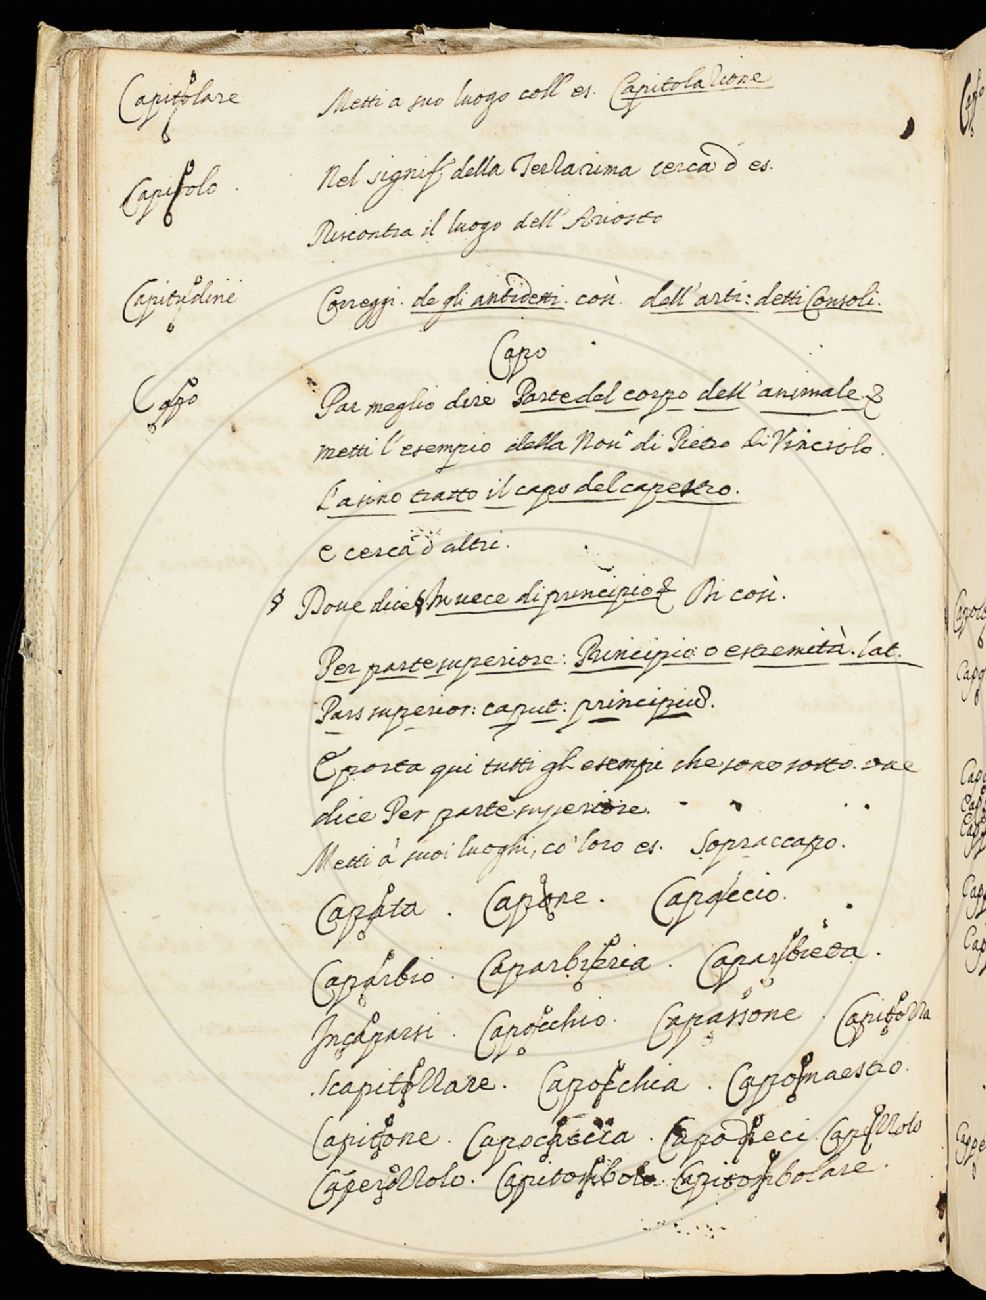 Capitolare Metti a suo luogo coll' es. Capitolazione
Capitolo Nel signif. della Terza rima cerca d es.
Riscontra il luogo dell' Ariosto
Capitudini Correggi. de gli antidetti. così. dell'arti: detti Consoli.
Capo
Capo Par meglio dire Parte del corpo dell' animale &
metti l'esempio della Nov. di Pietro di Vinciolo.
L'asino tratto il capo del capestro.
e cerca d altri.
§ Doue dice § In uece di principio & Di così.
Per parte superiore: Principio o estremità. lat.
Pars superior: caput: principiu.
E porta qui tutti gli esempi che sono sotto. oue
dice Per parte superiore.
Metti a' suoi luoghi, co' loro es. Sopraccapo.
Capata. Capone. Capoccio.
Caparbio. Caparbieria. Caparbietà.
Incaparsi. Capocchio. Capassone. Capitozza
Scapitozzare. Capocchia. Capomaestro.
Capitone. Capocaccia. Capodieci. Capezzolo
Caperozzolo. Capitombolo. Capitombolare.